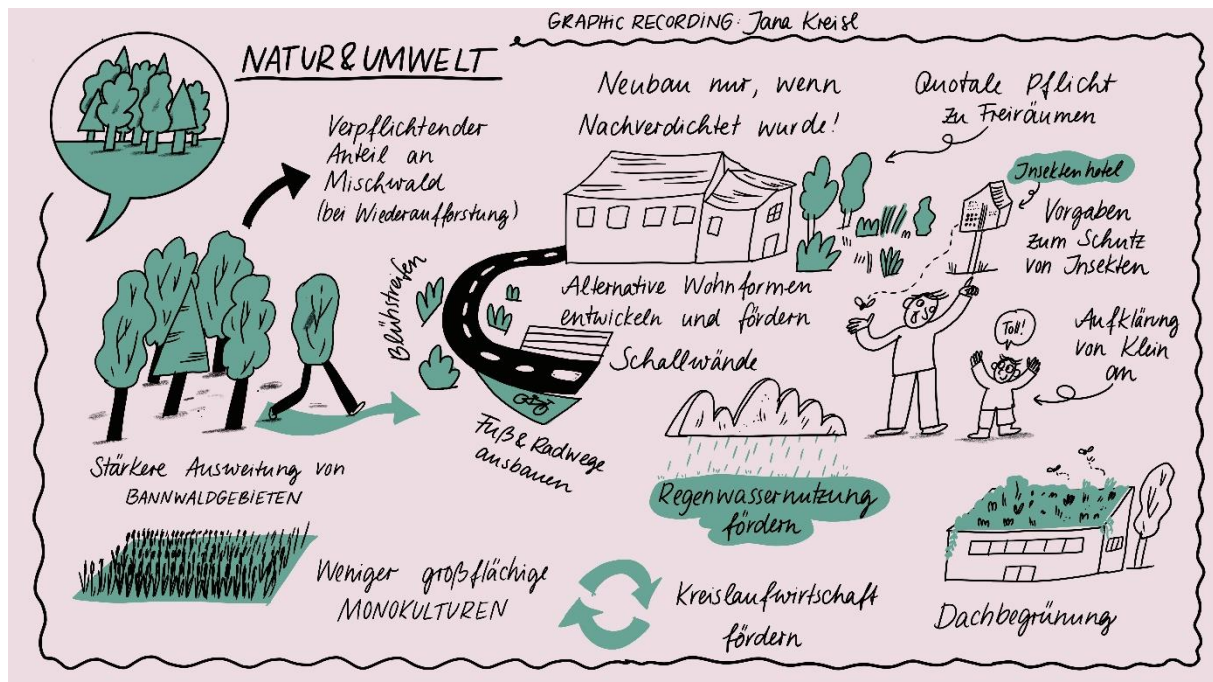 GRAPHIC RECORDING: Jana Kreisl
NATUR & UMWELT
Verpflichtender
Anteil an
Mischwald
(bei Wiederaufforstung)
Neubau nur, wenn
Nachverdichtet wurde!
Quotale Pflicht
zu Freiräumen
Insektenhotel
Vorgaben
zum Schutz
von Insekten
Blühstreifen
Alternative Wohnformen
entwickeln und fördern
Schallwände
Toll!
Aufklärung
von Klein
an
Fuß & Radwege
ausbauen
Stärkere Ausweitung von
BANNWALDGEBIETEN
Regenwassernutzung
fördern
Weniger großflächige
MONOKULTUREN
Kreislaufwirtschaft
fördern
Dachbegrünung